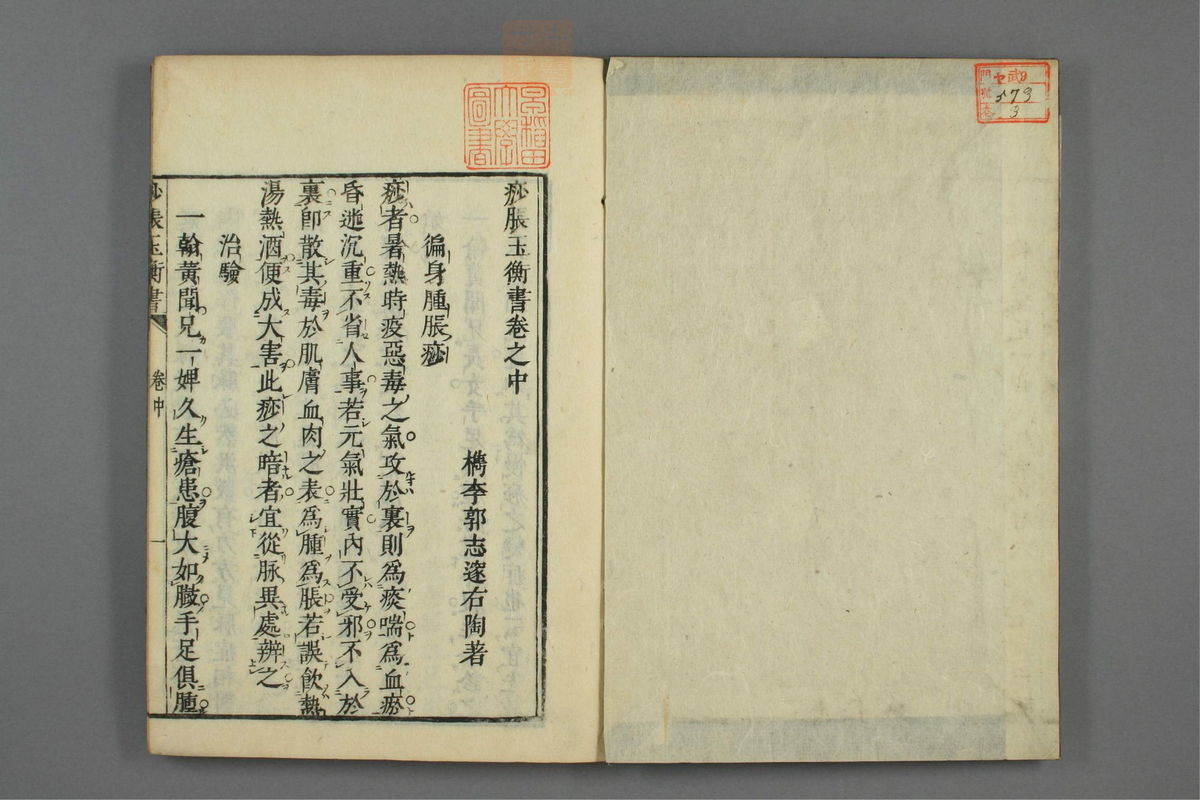 ヤ 武9
573
3
早稲田
大學
圖書
痧脹玉衡書卷之中
檇李郭志邃右陶著
徧身腫脹痧
痧者暑熱時疫惡毒之氣攻於裏則爲痰喘爲血瘀
昏迷沉重不省人事若元氣壯實內不受邪不入於
裏卽散其毒於肌膚血肉之表爲腫爲脹若誤飲熱
湯熱酒便成大害此痧之暗者宜從脉異處辨之
治驗
一翰黃聞兄一婢久生瘡患腹大如臌手足俱腫
痧脹玉衡書 卷中 一